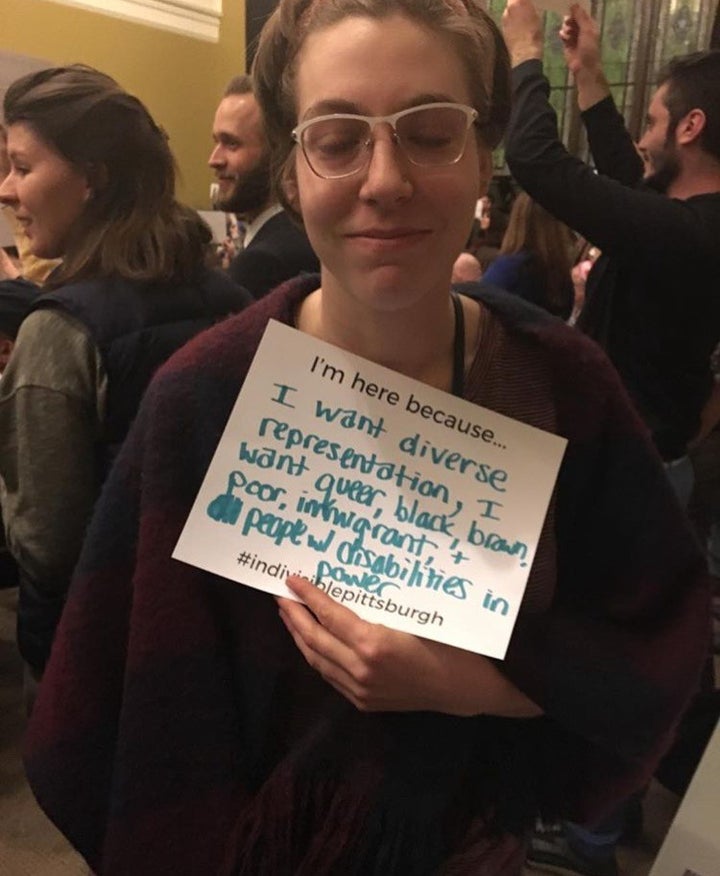 I'm here because...
I want diverse
representation, I
want queer, black, brown,
poor, immigrant, +
people w/ disabilities in
power
#indivisiblepittsburgh